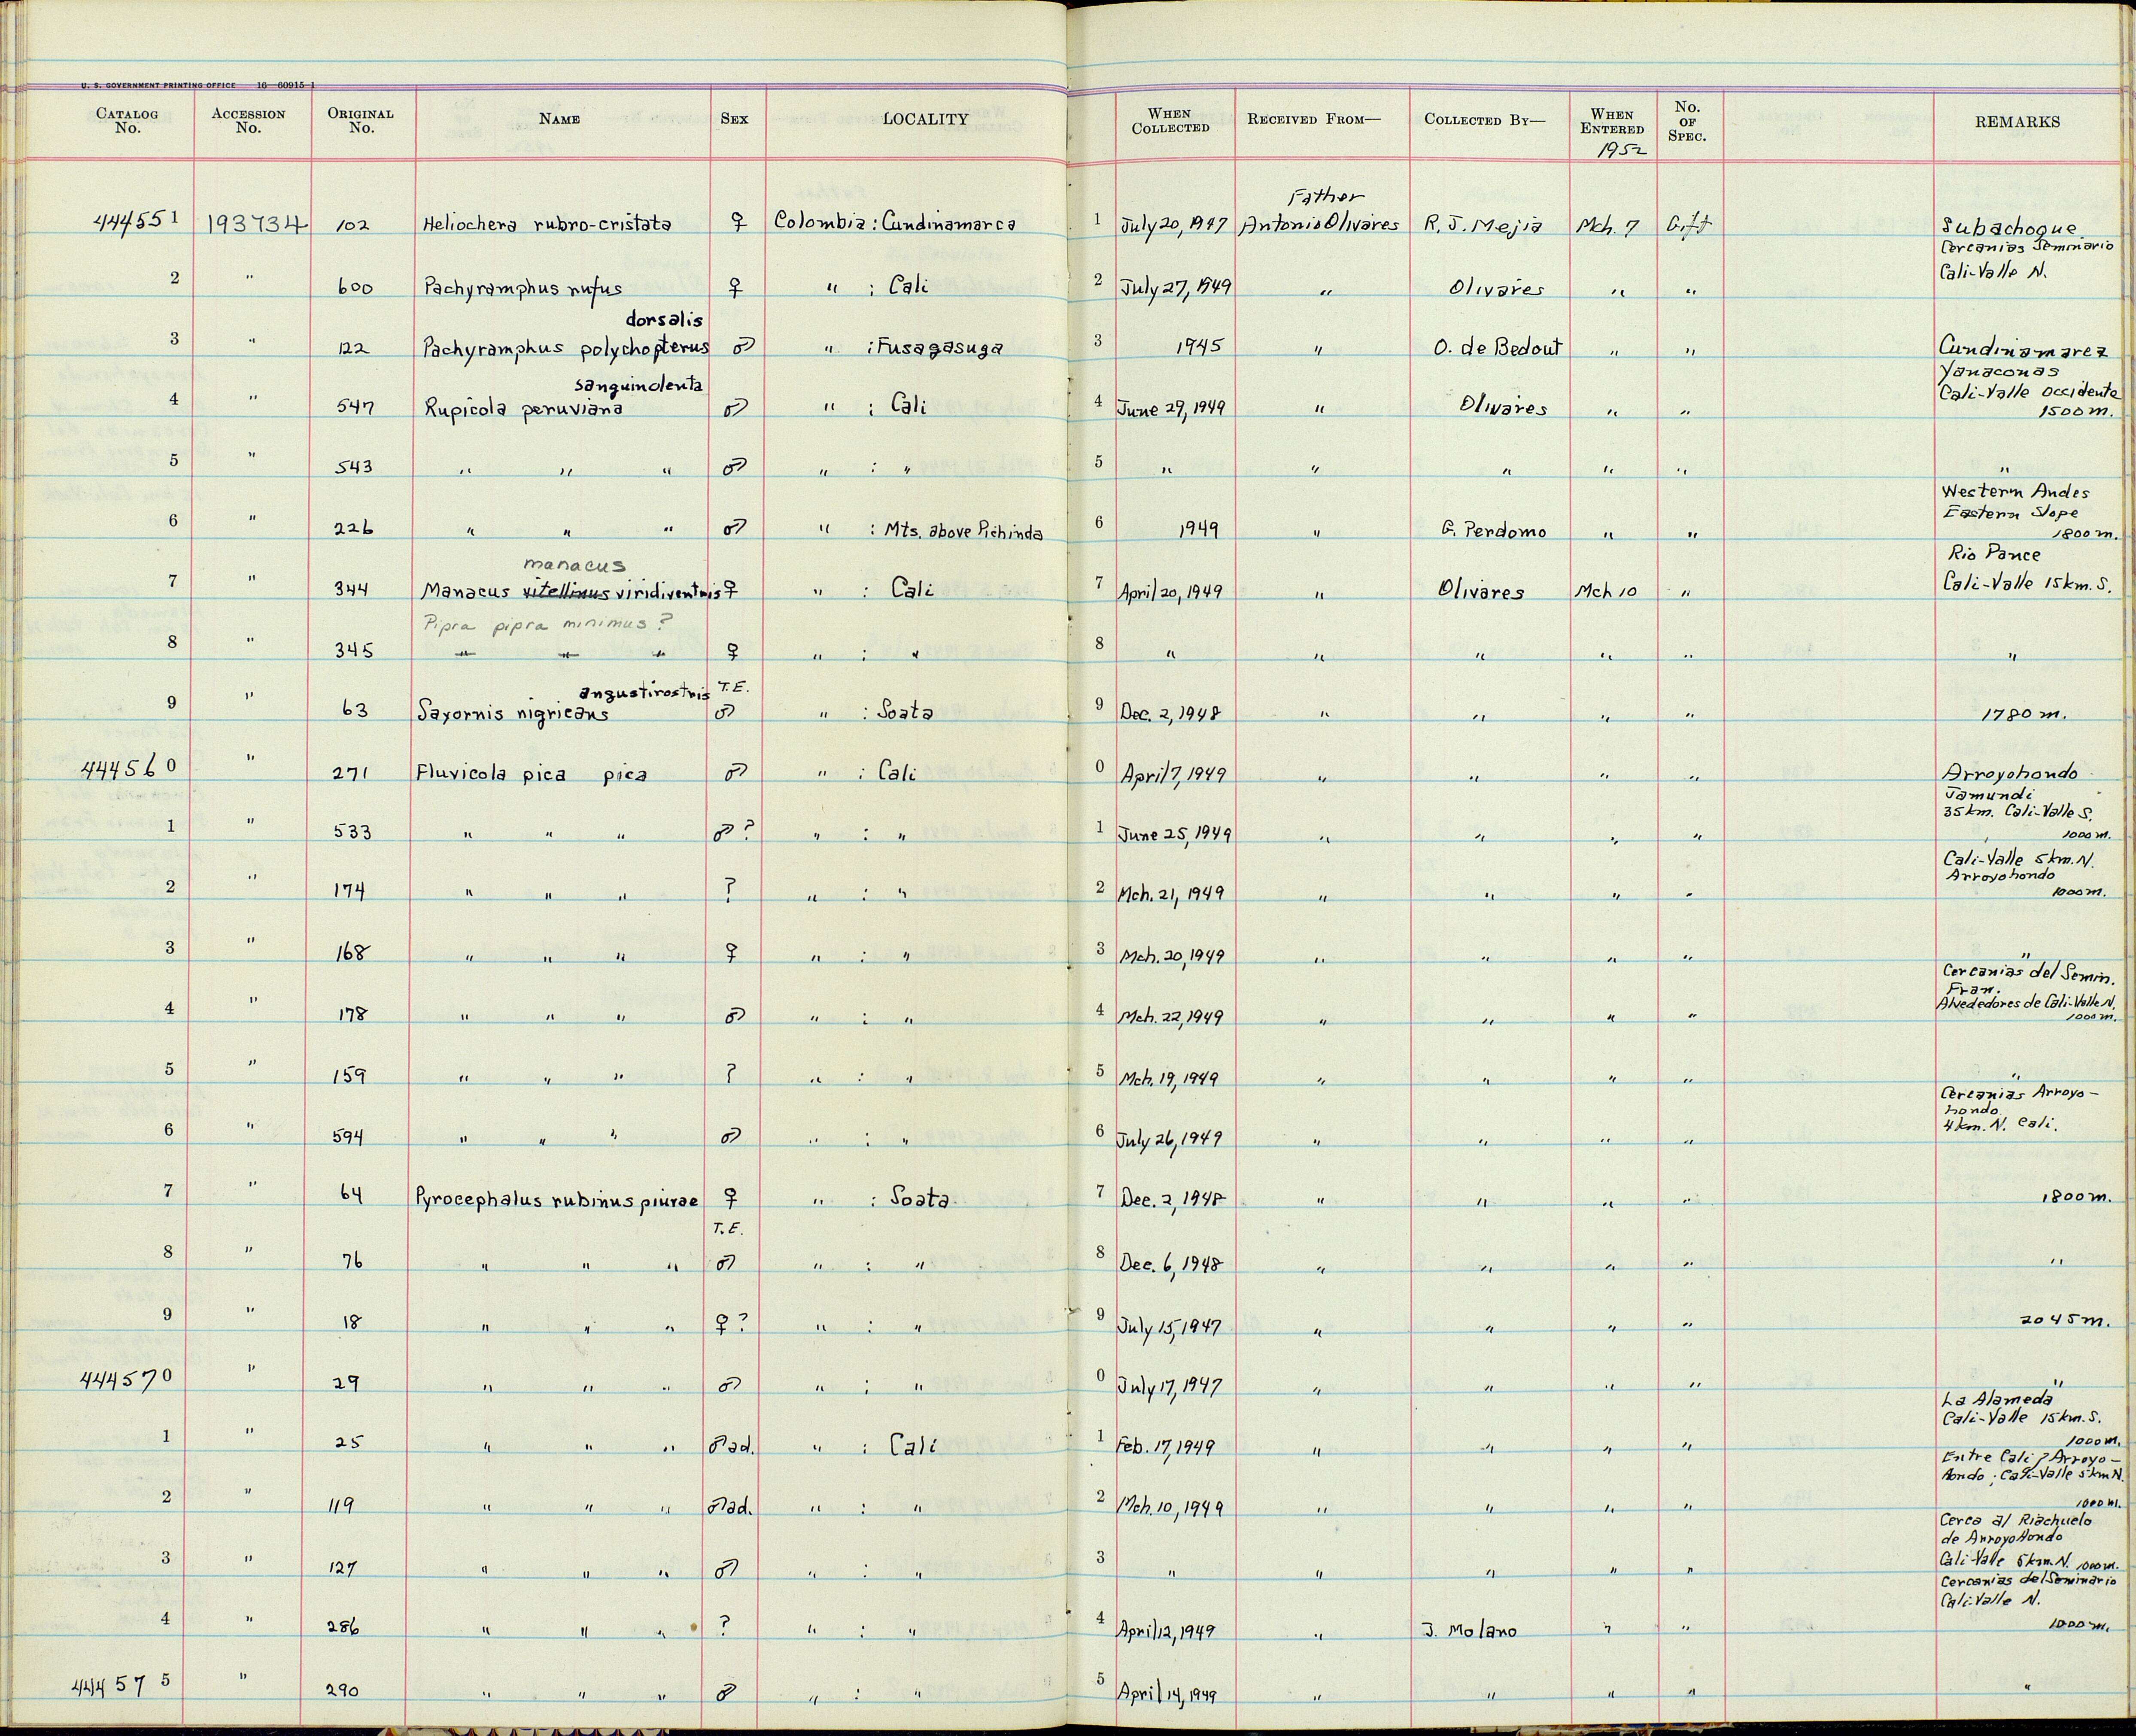 U. S. GOVERNMENT PRINTING OFFICE 16—60915-1
CATALOG No. ACCESSION No. ORIGINAL No. NAME SEX LOCALITY WHEN COLLECTED RECEIVED FROM— COLLECTED BY— WHEN ENTERED 1952 No. OF SPEC. REMARKS
444551 193734 102 Heliochera rubro-cristata ♀ Colombia : Cundinamarca 1 July 20, 1947 Father Antonio Olivares R. J. Mejia Mch. 7 Gift Subachoque
Cercanias Seminario
2 " 600 Pachyramphus rufus ♀ " : Cali 2 July 27, 1949 " Olivares " " Cali-Valle N.
dorsalis
3 " 122 Pachyramphus polychopterus ♂ " : Fusagasuga 3 1945 " O. de Bedout " " Cundinamarca
sanguinolenta Yanaconas
Cali-Valle Occidente
4 " 547 Rupicola peruviana ♂ " : Cali 4 June 29, 1949 " Olivares " " 1500 m.
5 " 543 " " " ♂ " : " 5 " " " " " "
Western Andes
Eastern Slope
6 " 226 " " " ♂ " : Mts. above Pichinda 6 1949 " G. Perdomo " " 1800 m.
manacus Rio Pance
7 " 344 Manacus vitellinus viridiventris ♀ " : Cali 7 April 20, 1949 " Olivares Mch 10 " Cali-Valle 15 km. S.
Pipra pipra minimus ?
8 " 345 " " " ♀ " : " 8 " " " " " "
angustirostris T.E.
9 " 63 Sayornis nigricans ♂ " : Soata 9 Dec. 2, 1948 " " " " 1780 m.
444560 " 271 Fluvicola pica pica ♂ " : Cali 0 April 7, 1949 " " " " Arroyohondo
Jamundi
35 km. Cali-Valle S.
1 " 533 " " " ♂ ? " : " 1 June 25, 1949 " " " " 1000 m.
Cali-Valle 5 km. N.
Arroyohondo
2 " 174 " " " ? " : " 2 Mch. 21, 1949 " " " " 1000 m.
3 " 168 " " " ♀ " : " 3 Mch. 20, 1949 " " " " "
Cercanias del Semin.
Fran.
Alrededores de Cali-Valle N.
4 " 178 " " " ♂ " : " 4 Mch. 22, 1949 " " " " 1000 m.
5 " 159 " " " ? " : " 5 Mch. 19, 1949 " " " " "
Cercanias Arroyo-
hondo
6 " 594 " " " ♂ " : " 6 July 26, 1949 " " " " 4 km. N. Cali.
7 " 64 Pyrocephalus rubinus piurae ♀ " : Soata 7 Dec. 2, 1948 " " " " 1800 m.
T.E.
8 " 76 " " " ♂ " : " 8 Dec. 6, 1948 " " " " "
9 " 18 " " " ♀ ? " : " 9 July 15, 1947 " " " " 2045 m.
444570 " 29 " " " ♂ " : " 0 July 17, 1947 " " " " "
La Alameda
Cali-Valle 15 km. S.
1 " 25 " " " ♂ ad. " : Cali 1 Feb. 17, 1949 " " " " 1000 m.
Entre Cali y Arroyo-
hondo; Cali-Valle 5 km N.
2 " 119 " " " ♂ ad. " : " 2 Mch. 10, 1949 " " " " 1000 m.
Cerca al Riachuelo
de Arroyo Hondo
3 " 127 " " " ♂ " : " 3 " " " " " Cali-Valle 5 km. N. 1000 m.
Cercanias del Seminario
Cali-Valle N.
4 " 286 " " " ? " : " 4 April 12, 1949 " J. Molano " " 1000 m.
444575 " 290 " " " ♂ " : " 5 April 14, 1949 " " " " "